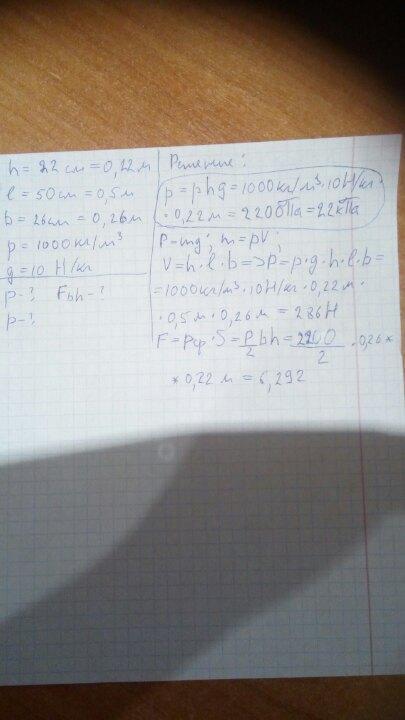 h = 22 см = 0,22 м
l = 50 см = 0,5 м
b = 26 см = 0,26 м
ρ = 1000 кг/м³
g = 10 Н/кг
p - ? F bh - ?
P - ?
Решение:
p = ρhg = 1000 кг/м³ · 10 Н/кг ·
· 0,22 м = 2200 Па = 22 кПа
P = mg; m = ρV;
V = h · l · b => P = ρ · g · h · l · b =
= 1000 кг/м³ · 10 Н/кг · 0,22 м ·
· 0,5 м · 0,26 м = 286 Н
F = pср · S = p/2 bh = 2200/2 · 0,26 *
* 0,22 м = 6,292